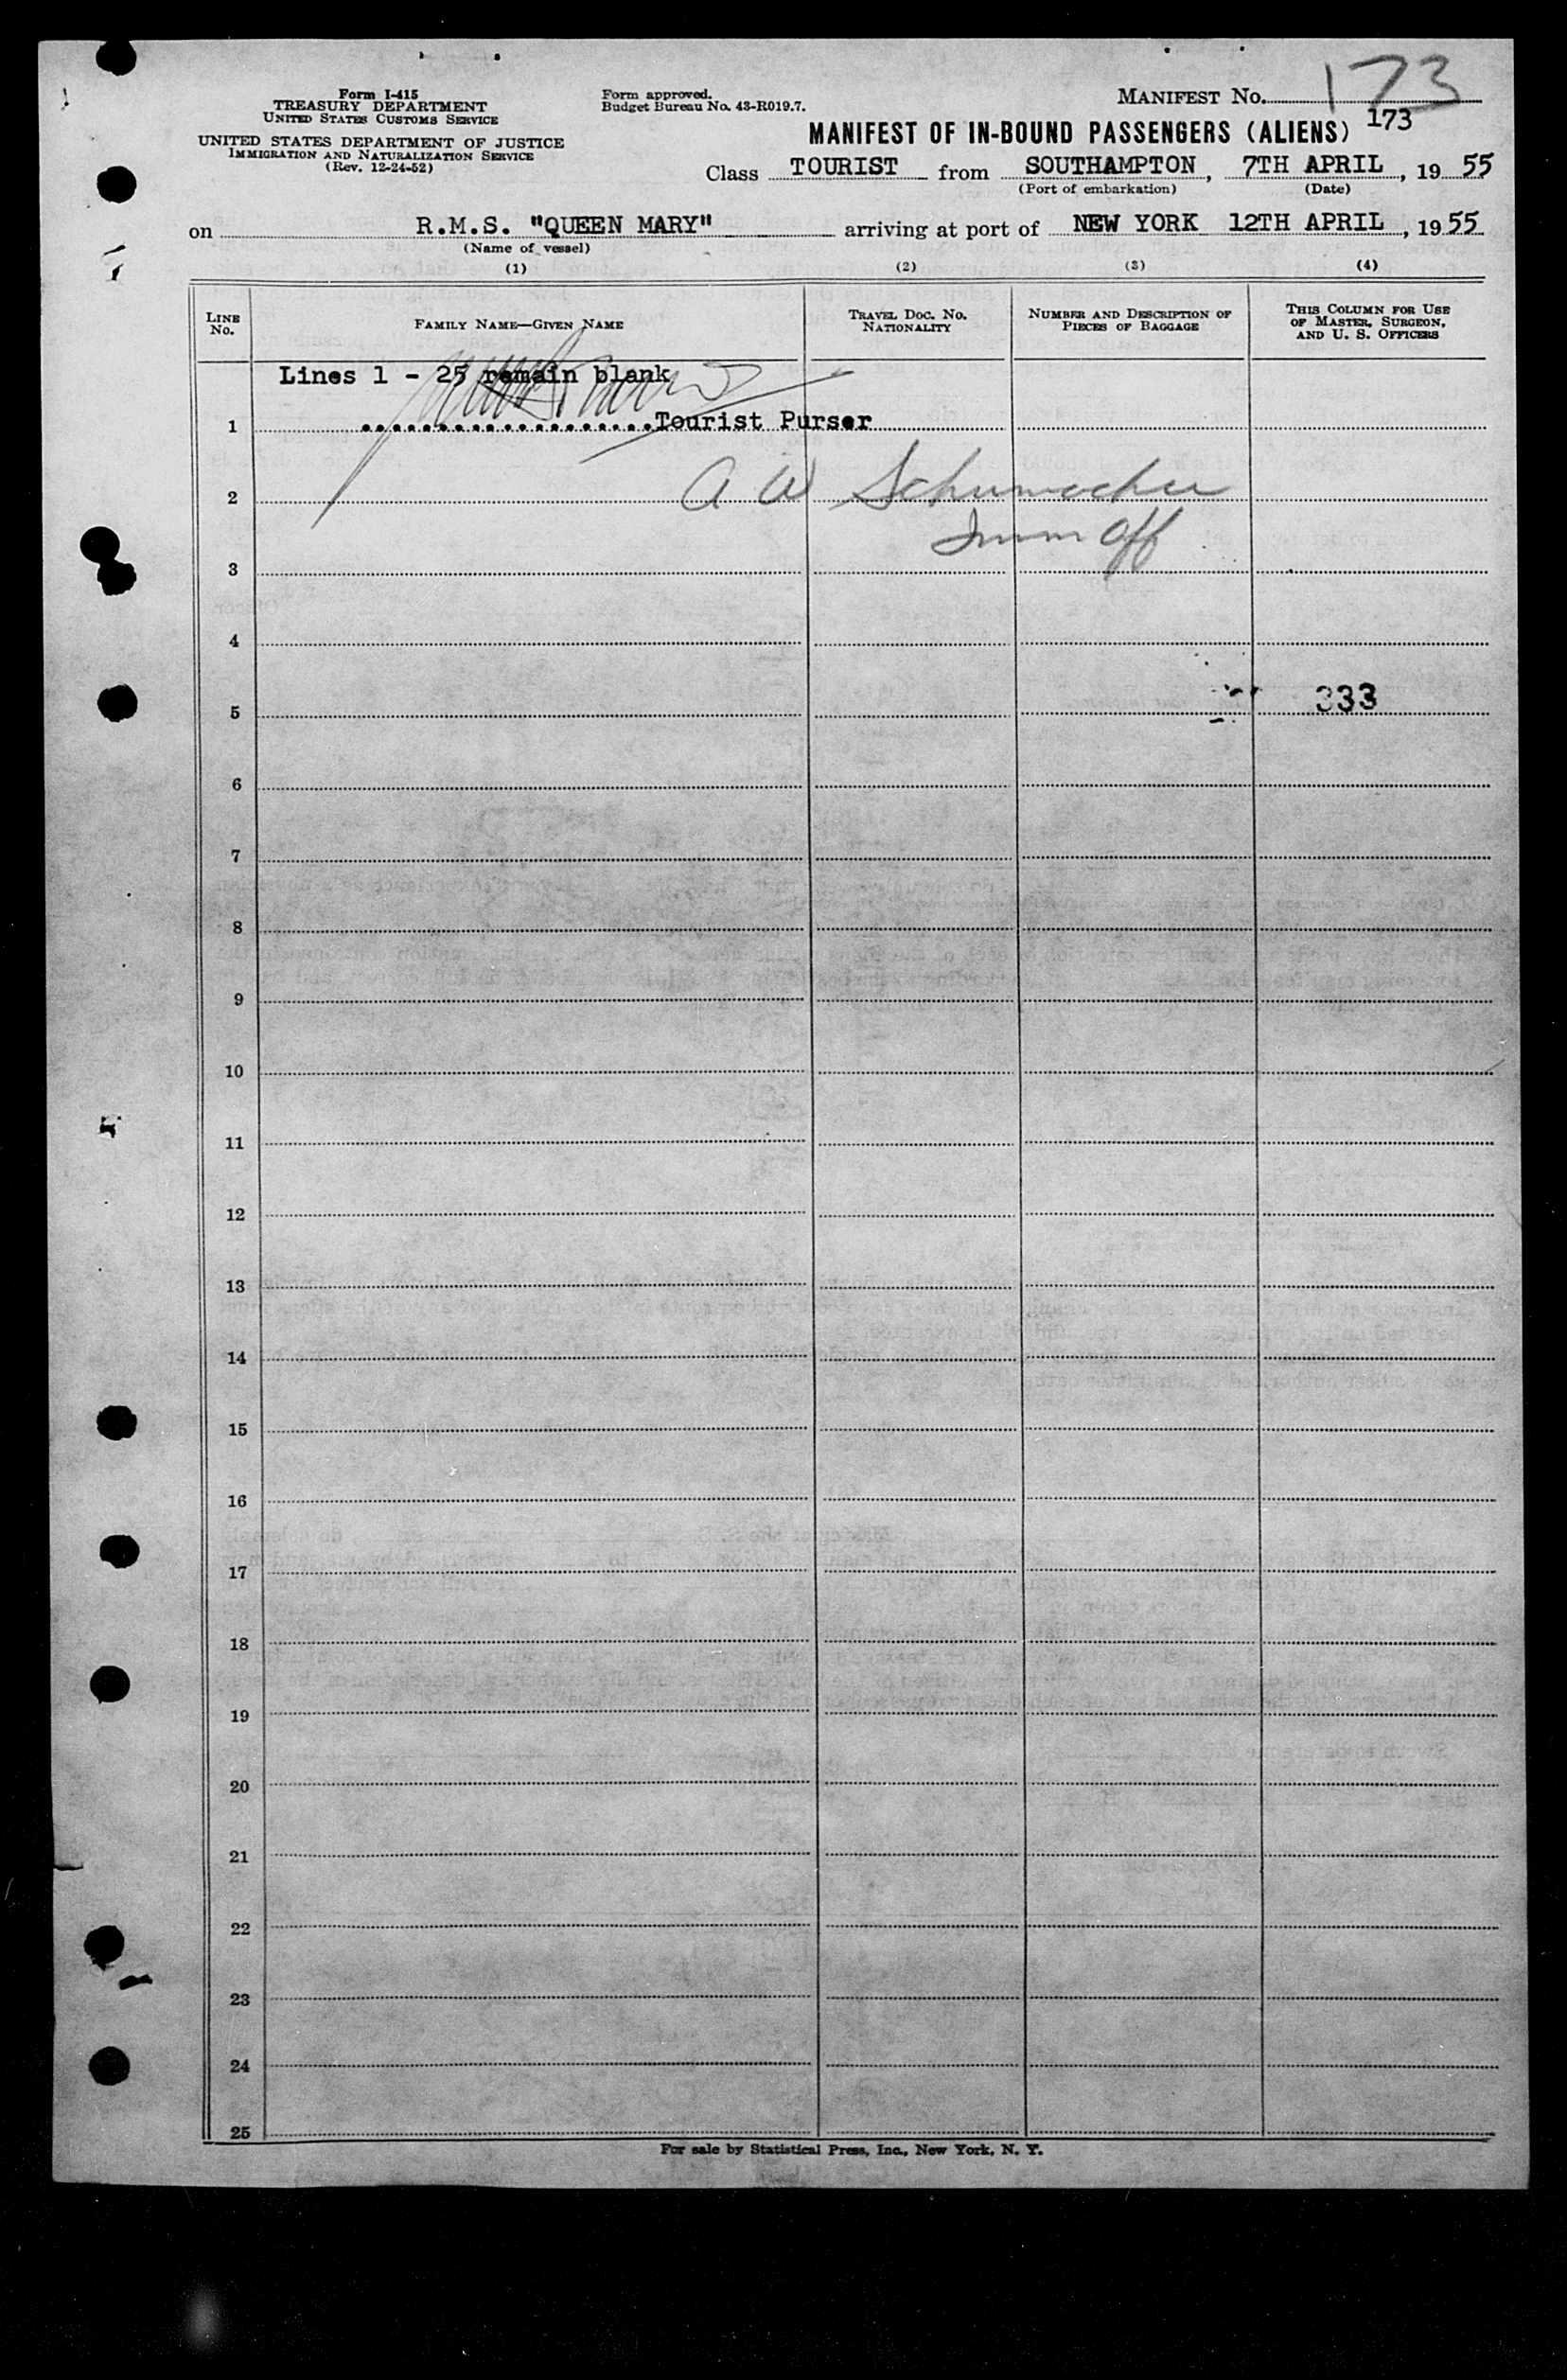 Form I-415
TREASURY DEPARTMENT
UNITED STATES CUSTOMS SERVICE
UNITED STATES DEPARTMENT OF JUSTICE
IMMIGRATION AND NATURALIZATION SERVICE
(Rev. 12-24-52)
Form approved.
Budget Bureau No. 43-R019.7.
MANIFEST No. 173
173
MANIFEST OF IN-BOUND PASSENGERS (ALIENS)
Class TOURIST from SOUTHAMPTON, 7TH APRIL, 1955
(Port of embarkation) (Date)
on R.M.S. "QUEEN MARY" arriving at port of NEW YORK 12TH APRIL, 1955
(Name of vessel)
(1) (2) (3) (4)
LINE No. FAMILY NAME—GIVEN NAME TRAVEL DOC. NO. NATIONALITY NUMBER AND DESCRIPTION OF PIECES OF BAGGAGE THIS COLUMN FOR USE OF MASTER, SURGEON, AND U. S. OFFICERS
Lines 1 - 25 remain blank
1 ...................Tourist Purser
2 A W Schumacher
Imm Off
3
4
5 333
6
7
8
9
10
11
12
13
14
15
16
17
18
19
20
21
22
23
24
25
For sale by Statistical Press, Inc., New York, N. Y.